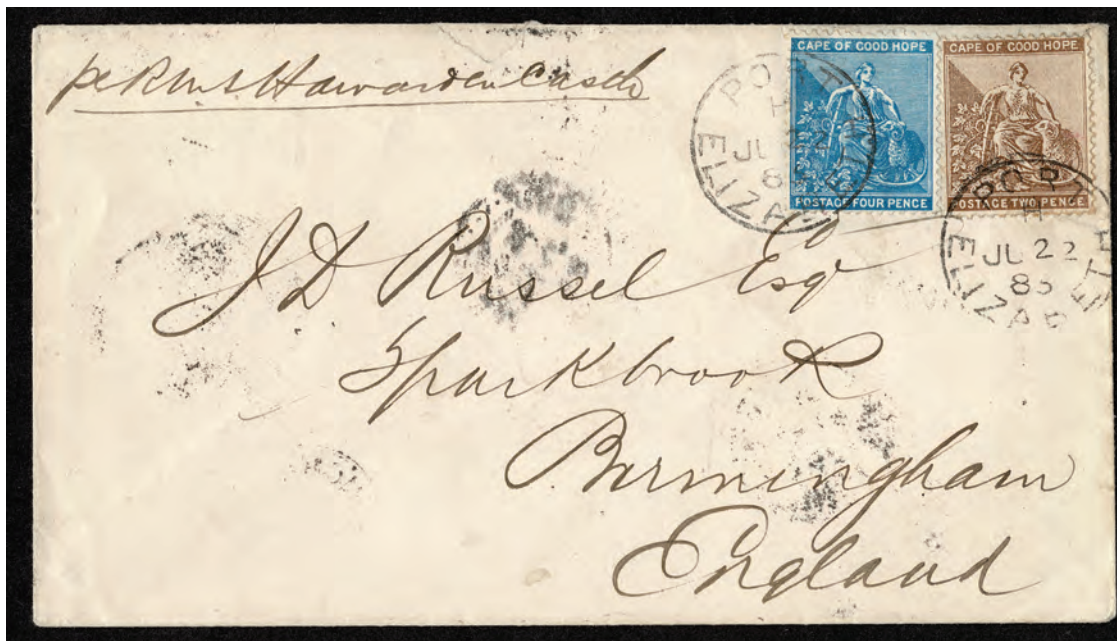 per RMS Hawarden Castle
CAPE OF GOOD HOPE
POSTAGE FOUR PENCE
CAPE OF GOOD HOPE
POSTAGE TWO PENCE
PORT ELIZABETH
H
JU 22
8
PORT ELIZABETH
H
JU 22
85
J D Russel Esq
Sparkbrook
Birmingham
England